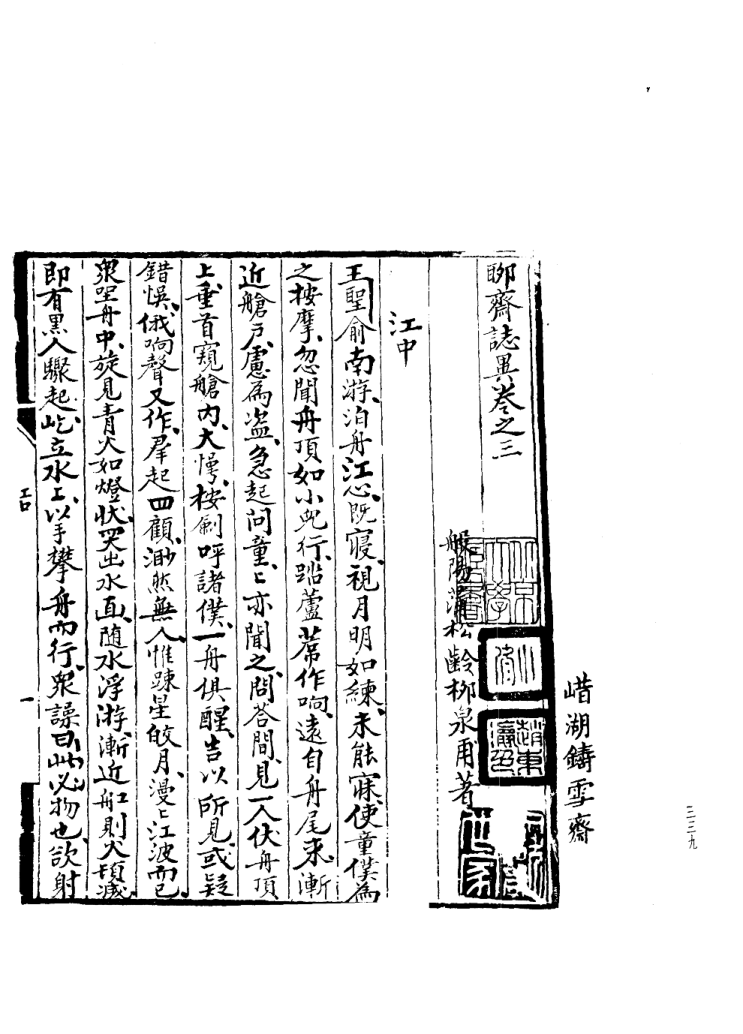 聊齋誌異卷之三
般陽蒲松齡柳泉甫著
江中
王聖俞南游泊舟江心既寢視月明如練未能寐使童僕為
之按摩忽聞舟頂如小兒行踏蘆蓆作响遠自舟尾來漸
近艙戶慮為盜急起問童〻亦聞之問答間見一人伏舟頂
上垂首窺艙內大愕按劍呼諸僕一舟俱醒告以所見或疑
錯悞俄响聲又作羣起四顧渺然無人惟疎星皎月漫〻江波而已
衆坐舟中旋見青火如燈狀突出水面隨水浮游漸近舡則火頓滅
即有黑人驟起屹立水上以手攀舟而行衆譟曰此必物也欲射
一
㟙湖鑄雪齋
三三九